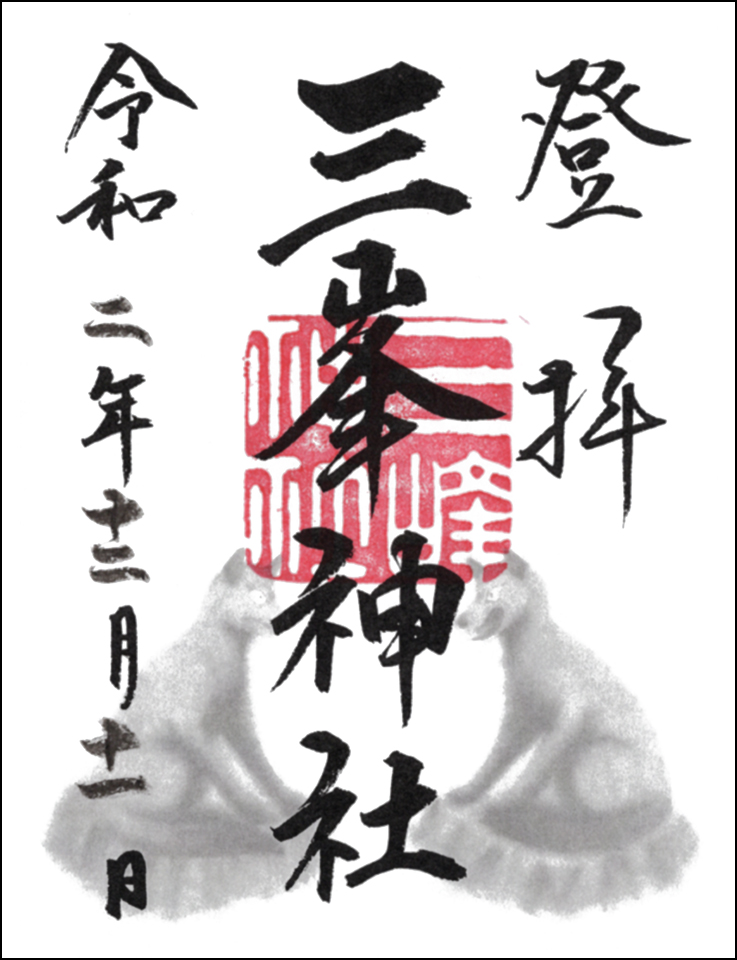 登拝
三峯神社
三峰神社
令和二年十二月十一日